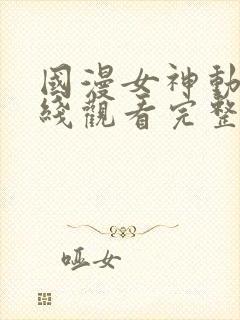 國漫女神動
綫觀看完整
哑女